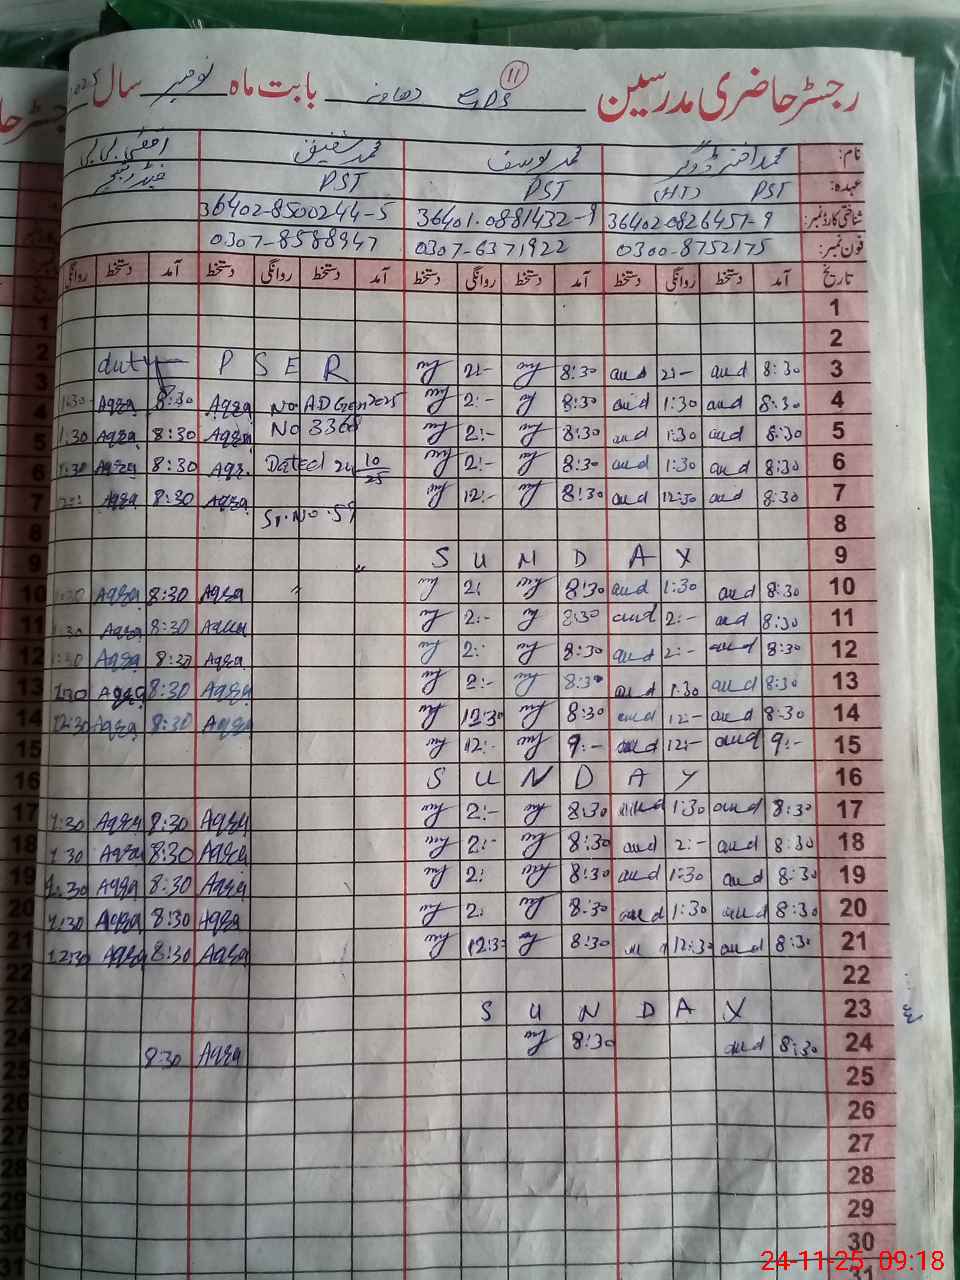 رجسٹر حاضری مدرسین GPS دھاونہ بابت ماہ نومبر سال
11
نام: محمد اختر ڈوگر محمد یوسف محمد شفیق اقصٰی بی بی
عہدہ: PST (HT) PST PST
شناختی کارڈ نمبر: 36402-0826457-9 36401-0881432-9 36402-8500244-5
فون نمبر: 0300-8752175 0307-6371922 0307-8588947
تاریخ آمد دستخط روانگی دستخط آمد دستخط روانگی دستخط آمد دستخط روانگی دستخط آمد دستخط روانگی
1
2
3 8:30 aud 2:- aud 8:30 2:- P S E R duty
4 8:30 aud 1:30 aud 8:30 2:- No AD Gen 2025 Aqsa 8:30 Aqsa 1:30
5 8:30 aud 1:30 aud 8:30 2:- No 3368 Aqsa 8:30 Aqsa 1:30
6 8:30 aud 1:30 aud 8:30 2:- Dated 24 10/25 Aqs. 8:30 Aqsa 1:30
7 8:30 aud 12:30 aud 8:30 12:- Aqsa 8:30 Aqsa
8 Sr. No. 59
9 S U N D A Y
10 8:30 aud 1:30 aud 8:30 2: " Aqsa 8:30 Aqsa 1:30
11 8:30 aud 2:- aud 8:30 2:- Aqsa 8:30 Aqsa 1:30
12 8:30 aud 2:- aud 8:30 2: Aqsa 8:30 Aqsa 1:30
13 8:30 aud 1:30 aud 8:30 2:- Aqsa 8:30 Aqsa 1:30
14 8:30 aud 12:- aud 8:30 12:30 Aqsa 8:30 Aqsa 12:30
15 9:- aud 12:- aud 9:- 12:-
16 S U N D A Y
17 8:30 aud 1:30 aud 8:30 2:- Aqsa 8:30 Aqsa 1:30
18 8:30 aud 2:- aud 8:30 2:- Aqsa 8:30 Aqsa 1:30
19 8:30 aud 1:30 aud 8:30 2: Aqsa 8:30 Aqsa 1:30
20 8:30 aud 1:30 aud 8:30 2: Aqsa 8:30 Aqsa 1:30
21 8:30 aud 12:30 8:30 12:30 Aqsa 8:30 Aqsa 12:30
22
23 S U N D A Y
24 8:30 aud 8:30 Aqsa 8:30
25
26
27
28
29
30
31
24-11-25, 09:18